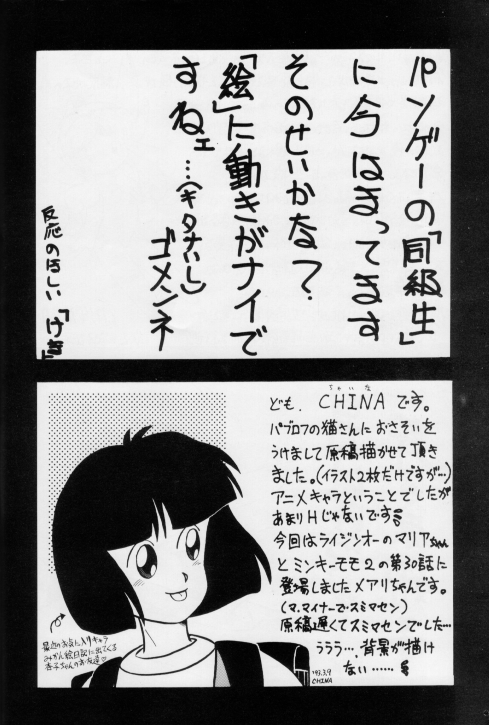 パソゲーの「同級生」
に今はまってます
そのせいかな？
「絵」に動きがナイで
すねェ…（キタナいし）
ゴメンネ
反応のほしい「けき」
ちゃいな
ども、CHINAです。
パブロフの猫さんにおさそいを
うけまして原稿描かせて頂き
ました。(イラスト2枚だけですが…)
アニメキャラということでしたが
あまりHじゃないです
今回はライジンオーのマリアちゃん
とミンキーモモ2の第30話に
登場しましたメアリちゃんです。
(マ、マイナーでスミマセン)
原稿遅くてスミマセンでした…
ううう…、背景が描け
ない……
最近のお気に入りキャラ
みかん絵日記に出てくる
杏子ちゃんのお友達♡
'93.3.9
CHINA